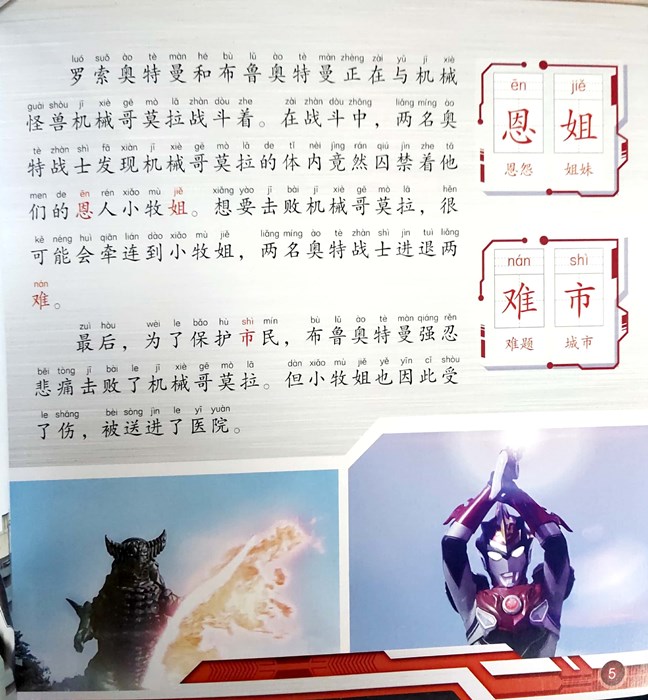 luó suǒ ào tè màn hé bù lǔ ào tè màn zhèng zài yǔ jī xiè
罗索奥特曼和布鲁奥特曼正在与机械
guài shòu jī xiè gē mò lā zhàn dòu zhe zài zhàn dòu zhōng liǎng míng ào
怪兽机械哥莫拉战斗着。在战斗中，两名奥
tè zhàn shì fā xiàn jī xiè gē mò lā de tǐ nèi jìng rán qiú jìn zhe tā
特战士发现机械哥莫拉的体内竟然囚禁着他
men de ēn rén xiǎo mù jiě xiǎng yào jī bài jī xiè gē mò lā hěn
们的恩人小牧姐。想要击败机械哥莫拉，很
kě néng huì qiān lián dào xiǎo mù jiě liǎng míng ào tè zhàn shì jìn tuì liǎng
可能会牵连到小牧姐，两名奥特战士进退两
nán
难。
zuì hòu wèi le bǎo hù shì mín bù lǔ ào tè màn qiáng rěn
最后，为了保护市民，布鲁奥特曼强忍
bēi tòng jī bài le jī xiè gē mò lā dàn xiǎo mù jiě yě yīn cǐ shòu
悲痛击败了机械哥莫拉。但小牧姐也因此受
le shāng bèi sòng jìn le yī yuàn
了伤，被送进了医院。
ēn jiě
恩 姐
恩怨 姐妹
nán shì
难 市
难题 城市
5